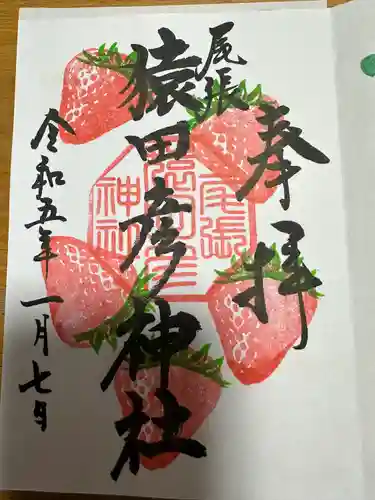 奉拝
尾張
猿田彦神社
令和五年一月七日
尾張
猿田彦
神社